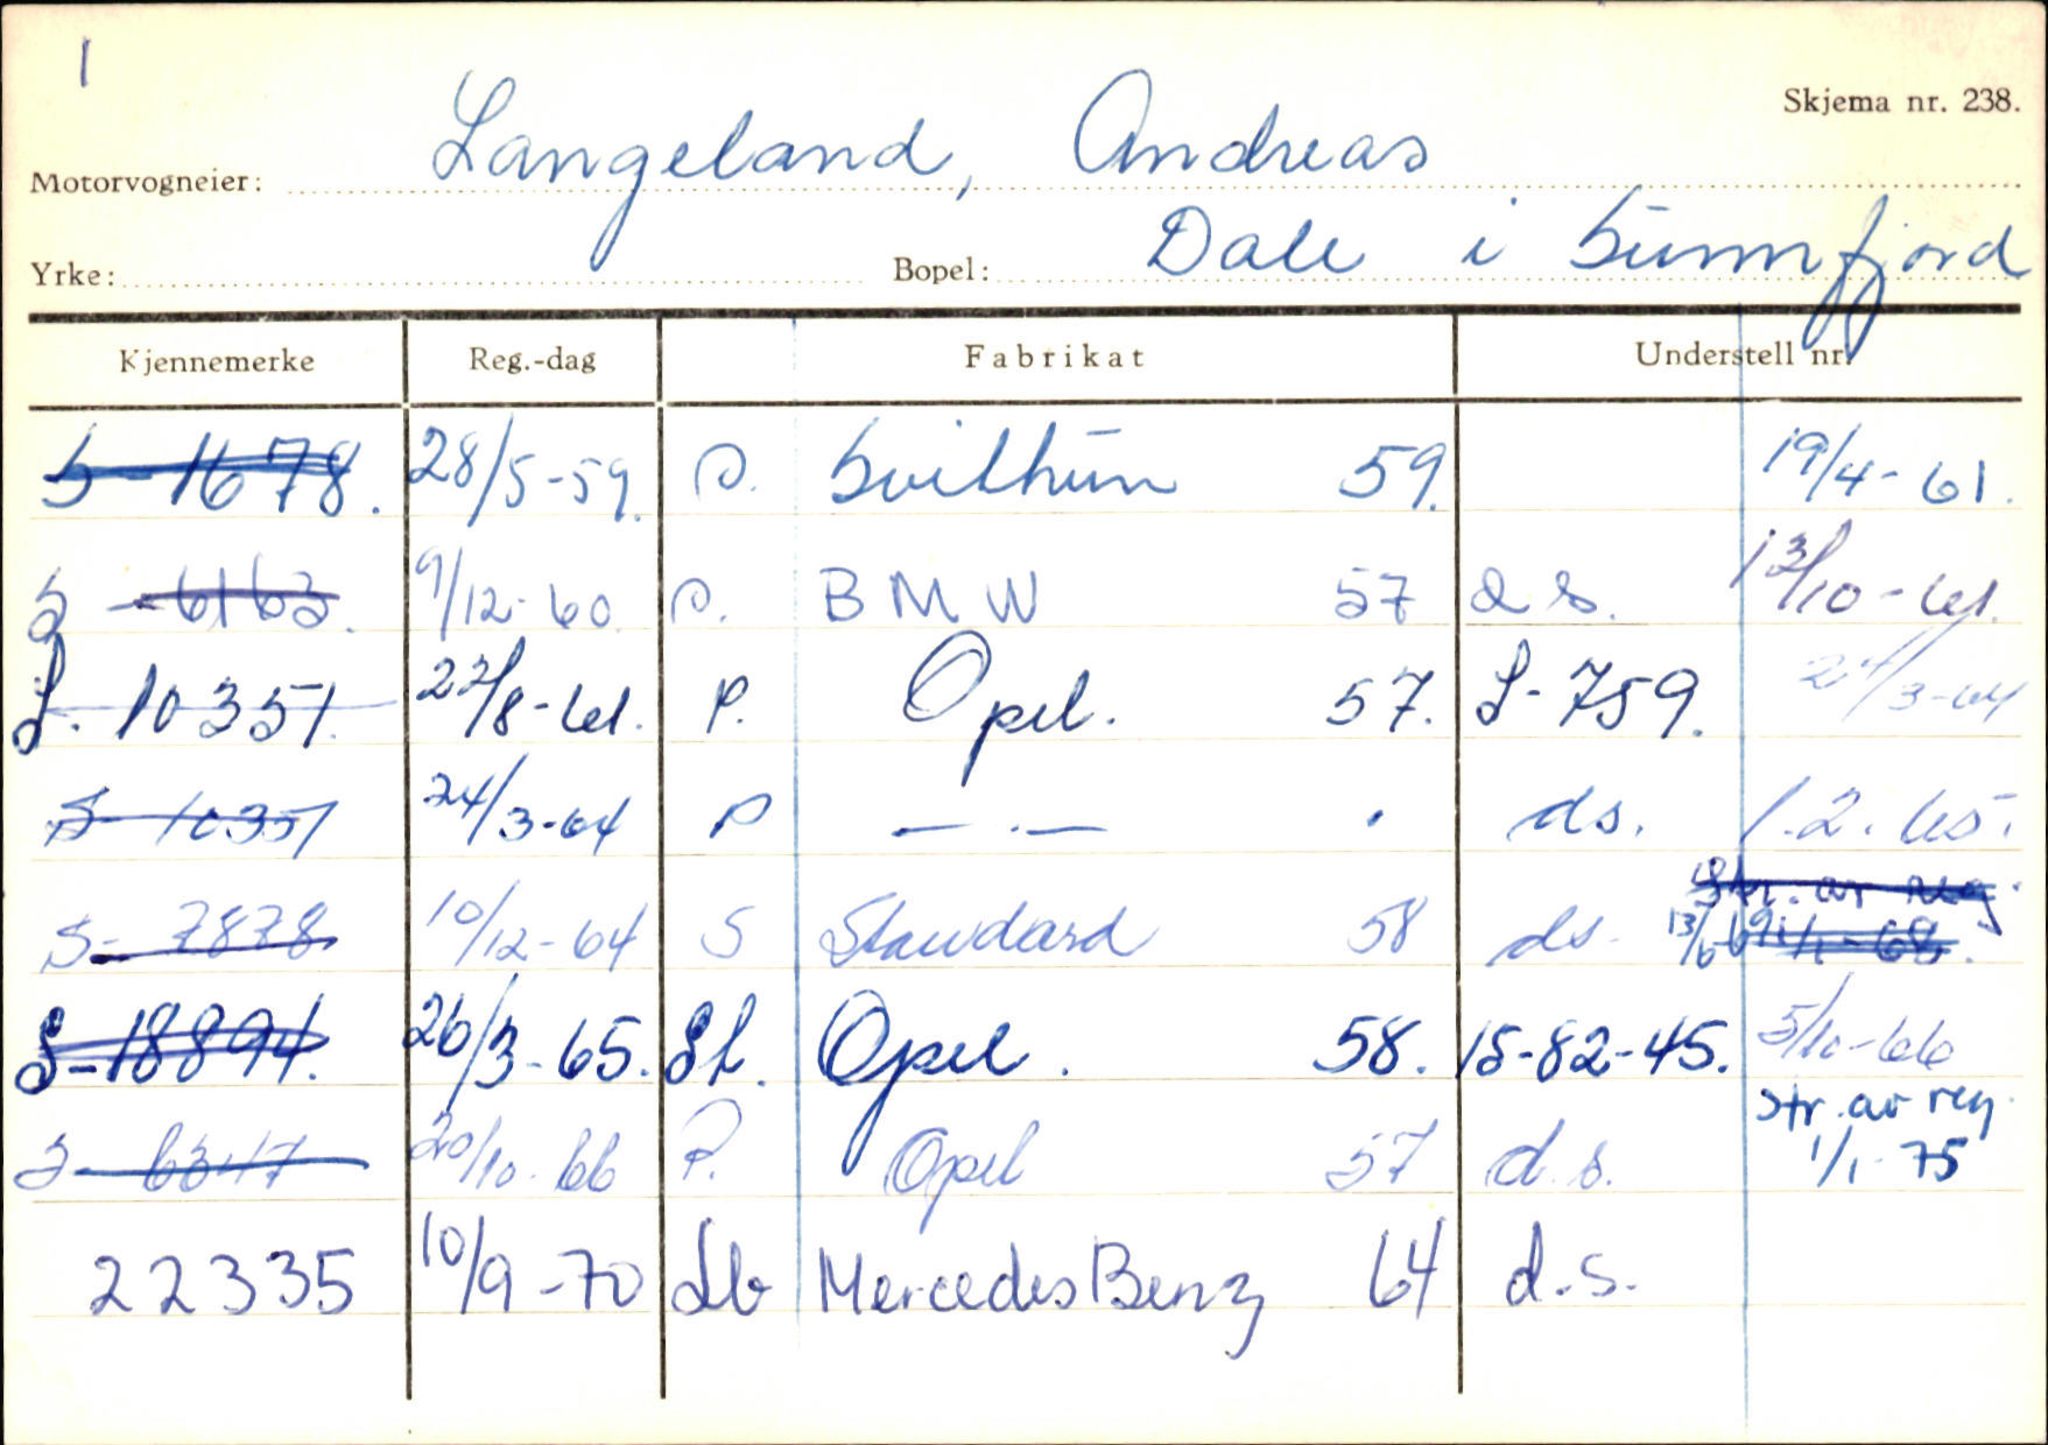 1
Skjema nr. 238.
Motorvogneier: Langeland, Andreas
Yrke: Bopel: Dale i Sunnfjord
Kjennemerke Reg.-dag Fabrikat Understell nr.
S-1678. 28/5-59. P. Svithun 59. 19/4-61.
S-6163. 9/12-60. P. BMW 57 d s. 13/10-61.
S. 10351. 22/8-61. P. Opel. 57. S-759. 24/3-64
S-10351 24/3-64 P —.— . ds. 1.2.65.
Str. av reg.
S-7878 10/12-64 S Standard 58 ds. 13/6-69 1/1-68.
S-18894. 26/3-65. St. Opel. 58. 15-82-45. 5/10-66
str. av reg.
S-6347 20/10-66 P. Opel 57 d.s. 1/1-75
22335 10/9-70 Lb Mercedes Benz 64 d.s.